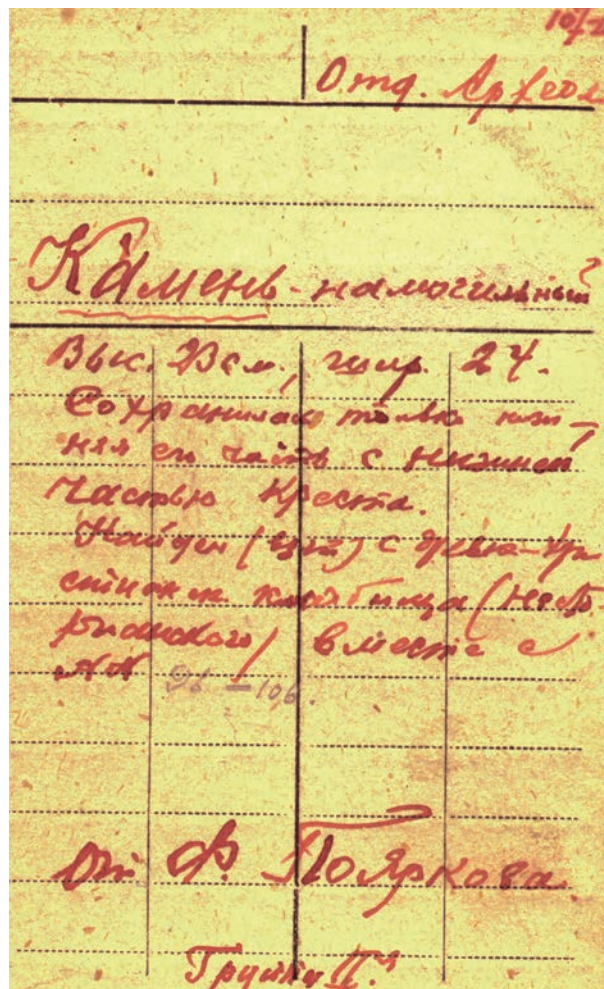 Отд. Археол
Камень - намогильный
Выс. 23 см., шир. 24.
Сохранилась только ниж-
няя его часть с нижней
частью креста.
Найден с древне-хри
стианск кладбища (несто-
рианского) вместе с
№№ 96 – 106.
От Ф. Пояркова
Группа II.